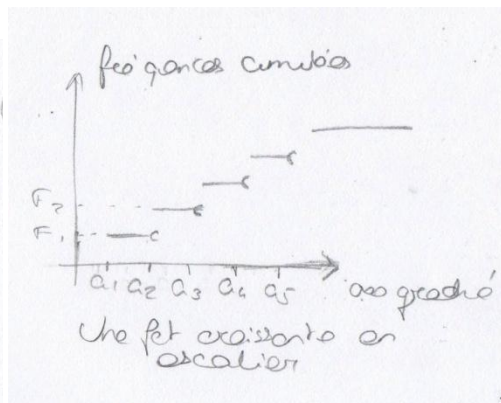 fréquences cumulées
F2
F1
a1 a2 a3 a4 a5 axe gradué
Une fct croissante en
escalier